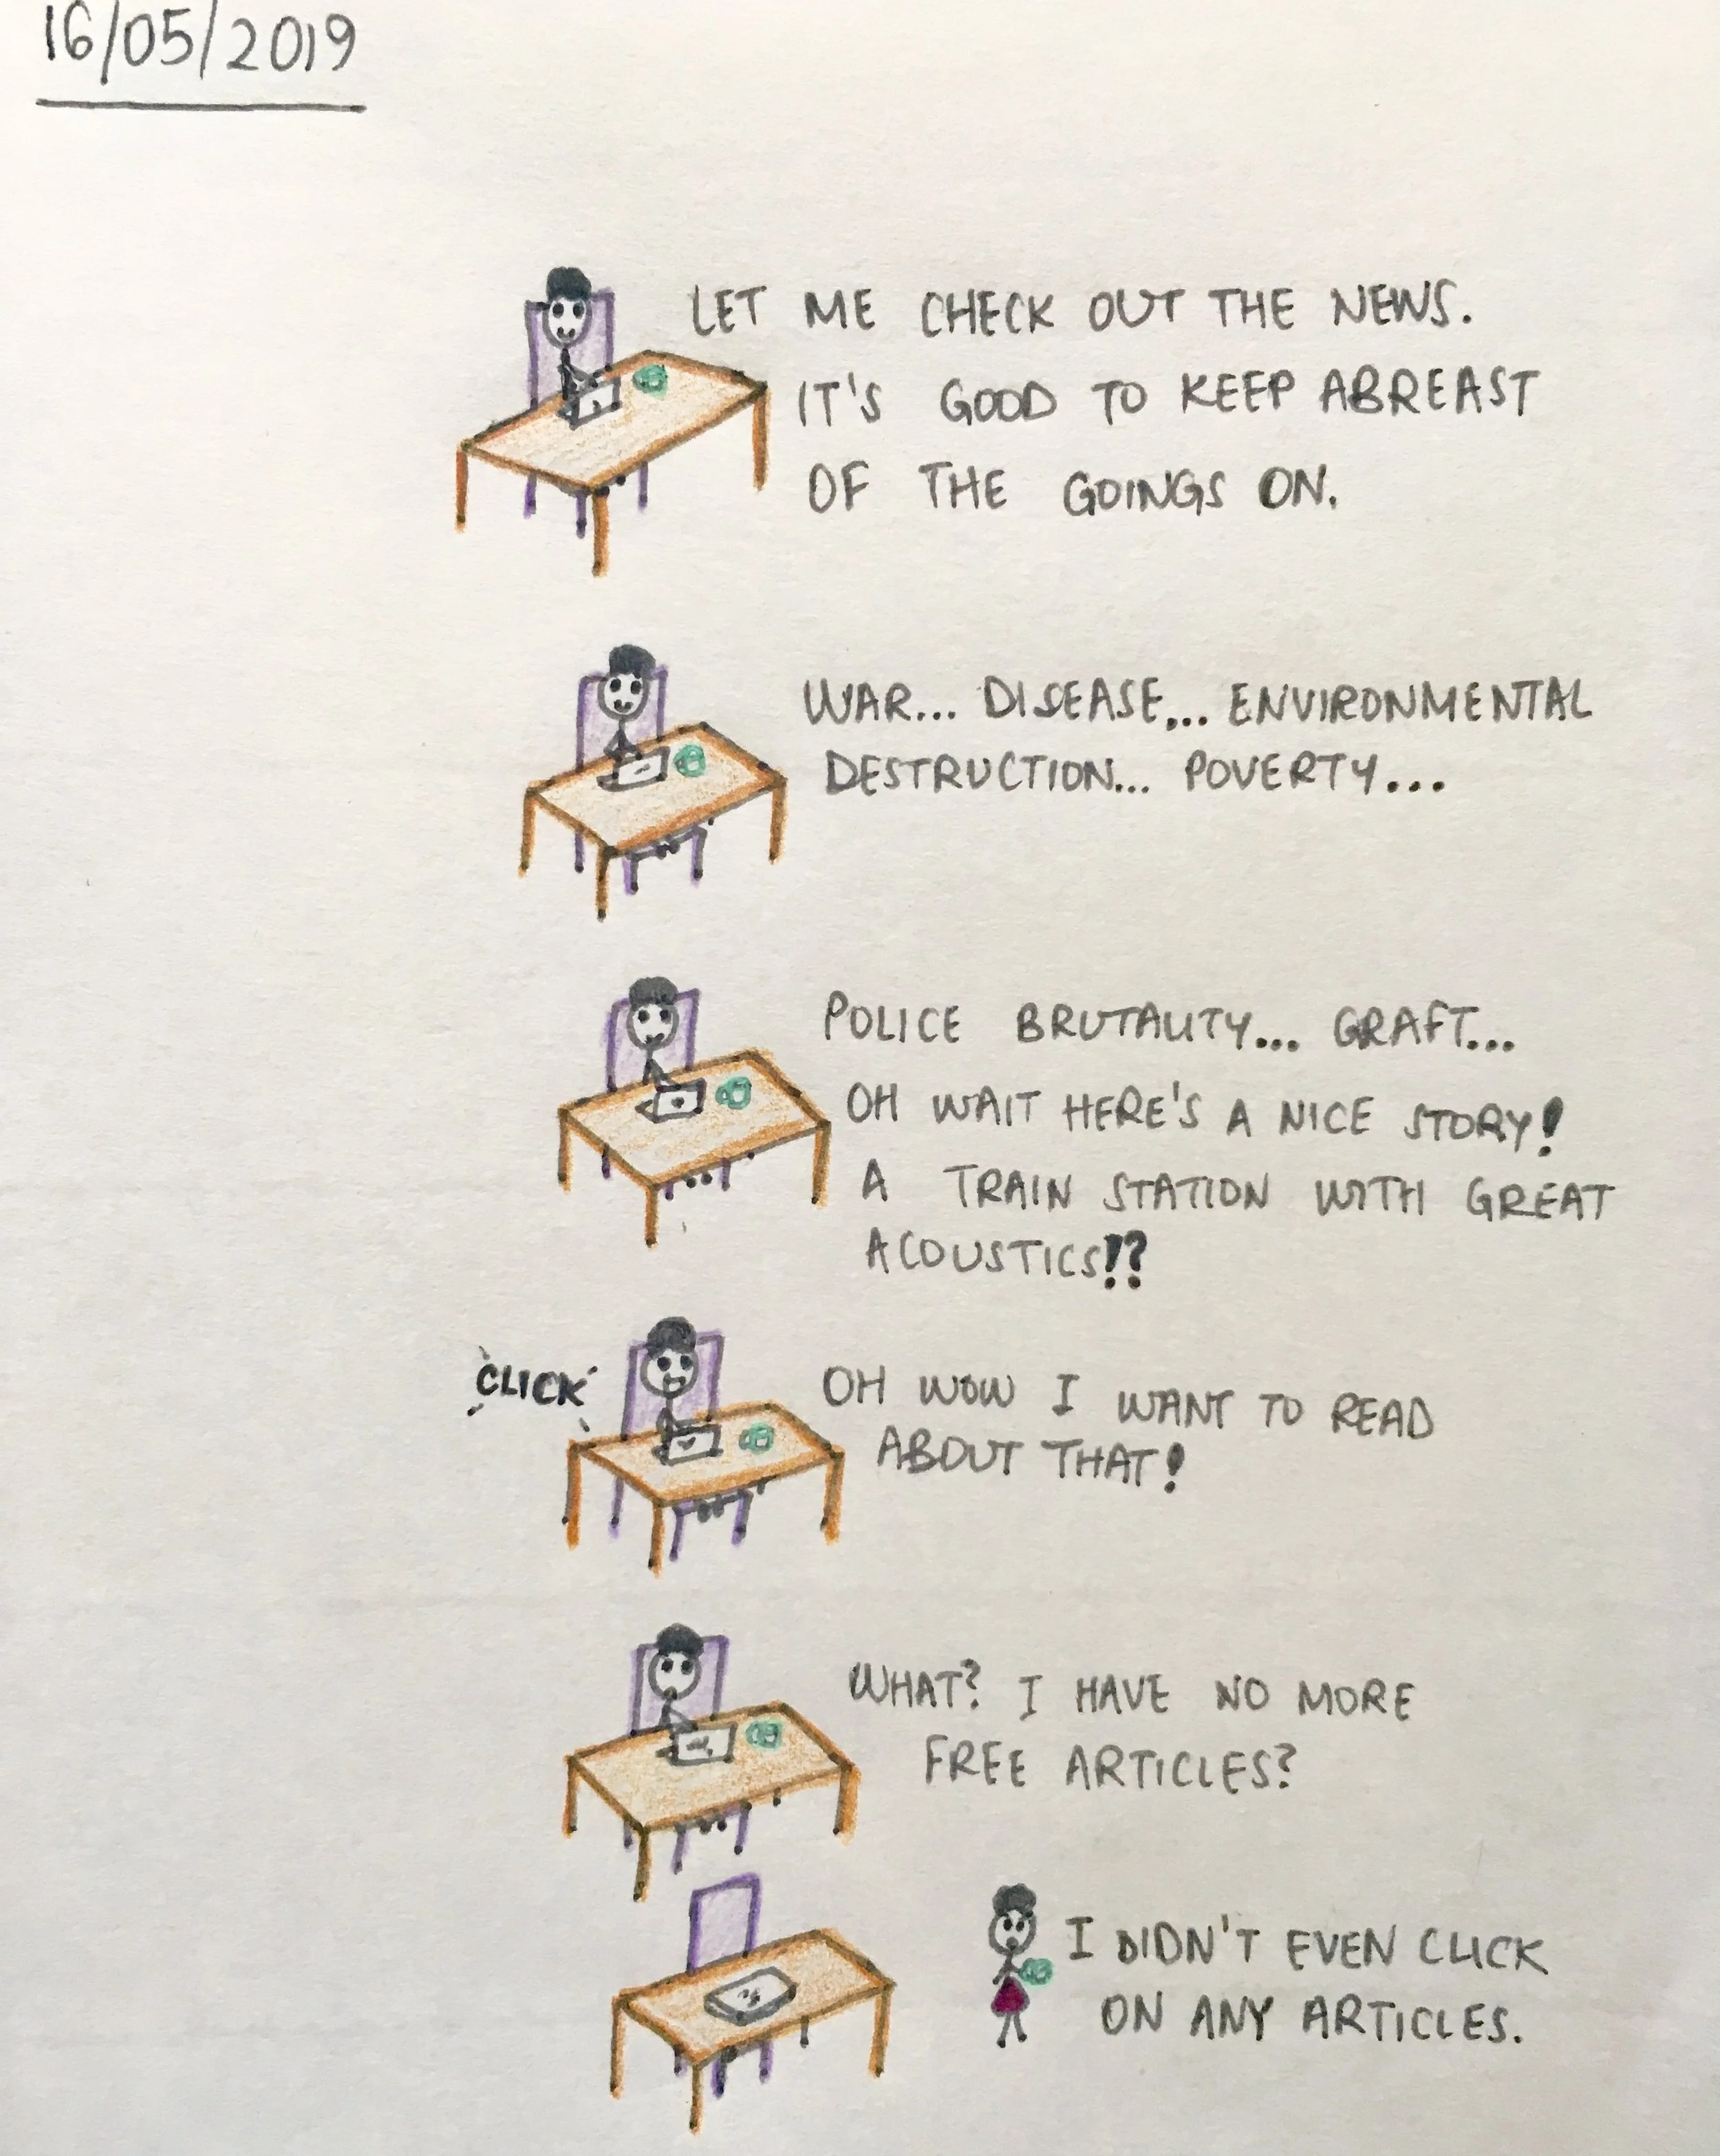 16/05/2019
LET ME CHECK OUT THE NEWS.
IT'S GOOD TO KEEP ABREAST
OF THE GOINGS ON.
WAR... DISEASE... ENVIRONMENTAL
DESTRUCTION... POVERTY...
POLICE BRUTALITY... GRAFT...
OH WAIT HERE'S A NICE STORY!
A TRAIN STATION WITH GREAT
ACOUSTICS!?
CLICK
OH WOW I WANT TO READ
ABOUT THAT!
WHAT? I HAVE NO MORE
FREE ARTICLES?
I DIDN'T EVEN CLICK
ON ANY ARTICLES.